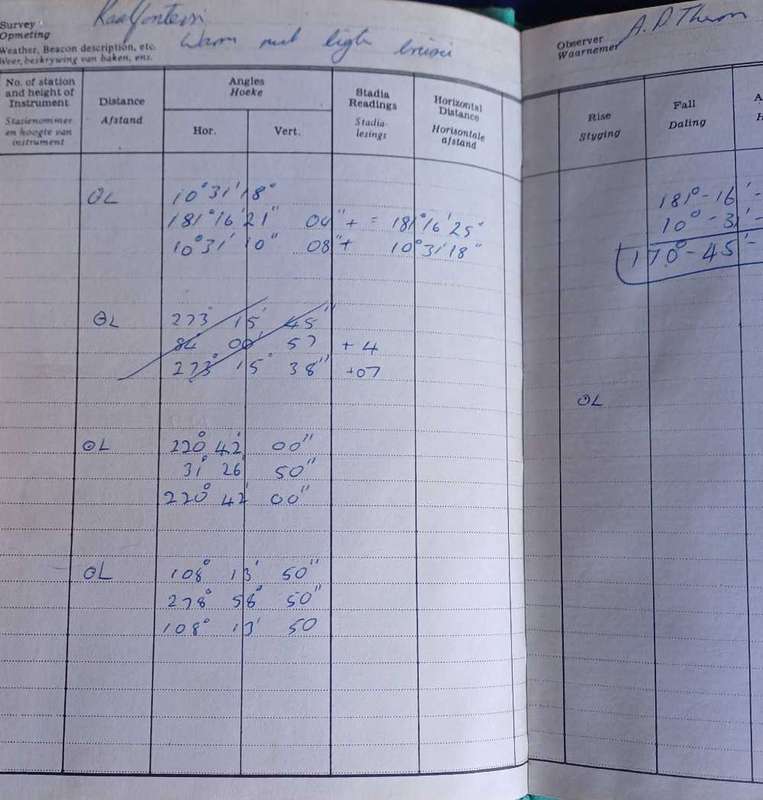 Survey
Opmeting
Weather, Beacon description, etc. Warm
Weer, beskrywing van baken, ens.
No. of station and height of Instrument
Stasienommer en hoogte van instrument
Distance
Afstand
Angles
Hoeke
Hor. Vert.
Stadia Readings
Stadia-lesings
Horizontal Distance
Horisontale afstand
ʘL 10° 31' 18"
181° 16' 21" 04" + = 181° 16' 25"
10° 31' 10" 08" + 10° 31' 18"
ʘL 273° 15' 45"
84 00' 57 + 4
273° 15' 38" +07
ʘL 220° 42' 00"
31° 26' 50"
220° 42' 00"
ʘL 108° 13' 50"
278° 58' 50"
108° 13' 50
Observer A. P. Theron
Waarnemer
Rise
Styging
Fall
Daling
181° - 16' -
10° - 31' -
170° - 45' -
ʘL